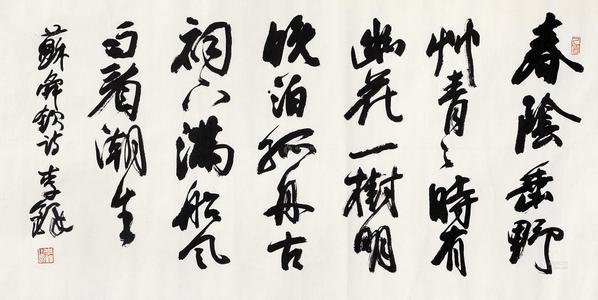 春陰垂野
艸青々時有
幽花一樹明
晚泊孤舟古
祠下滿船风
雨看潮生
蘇舜欽詩 李鐸